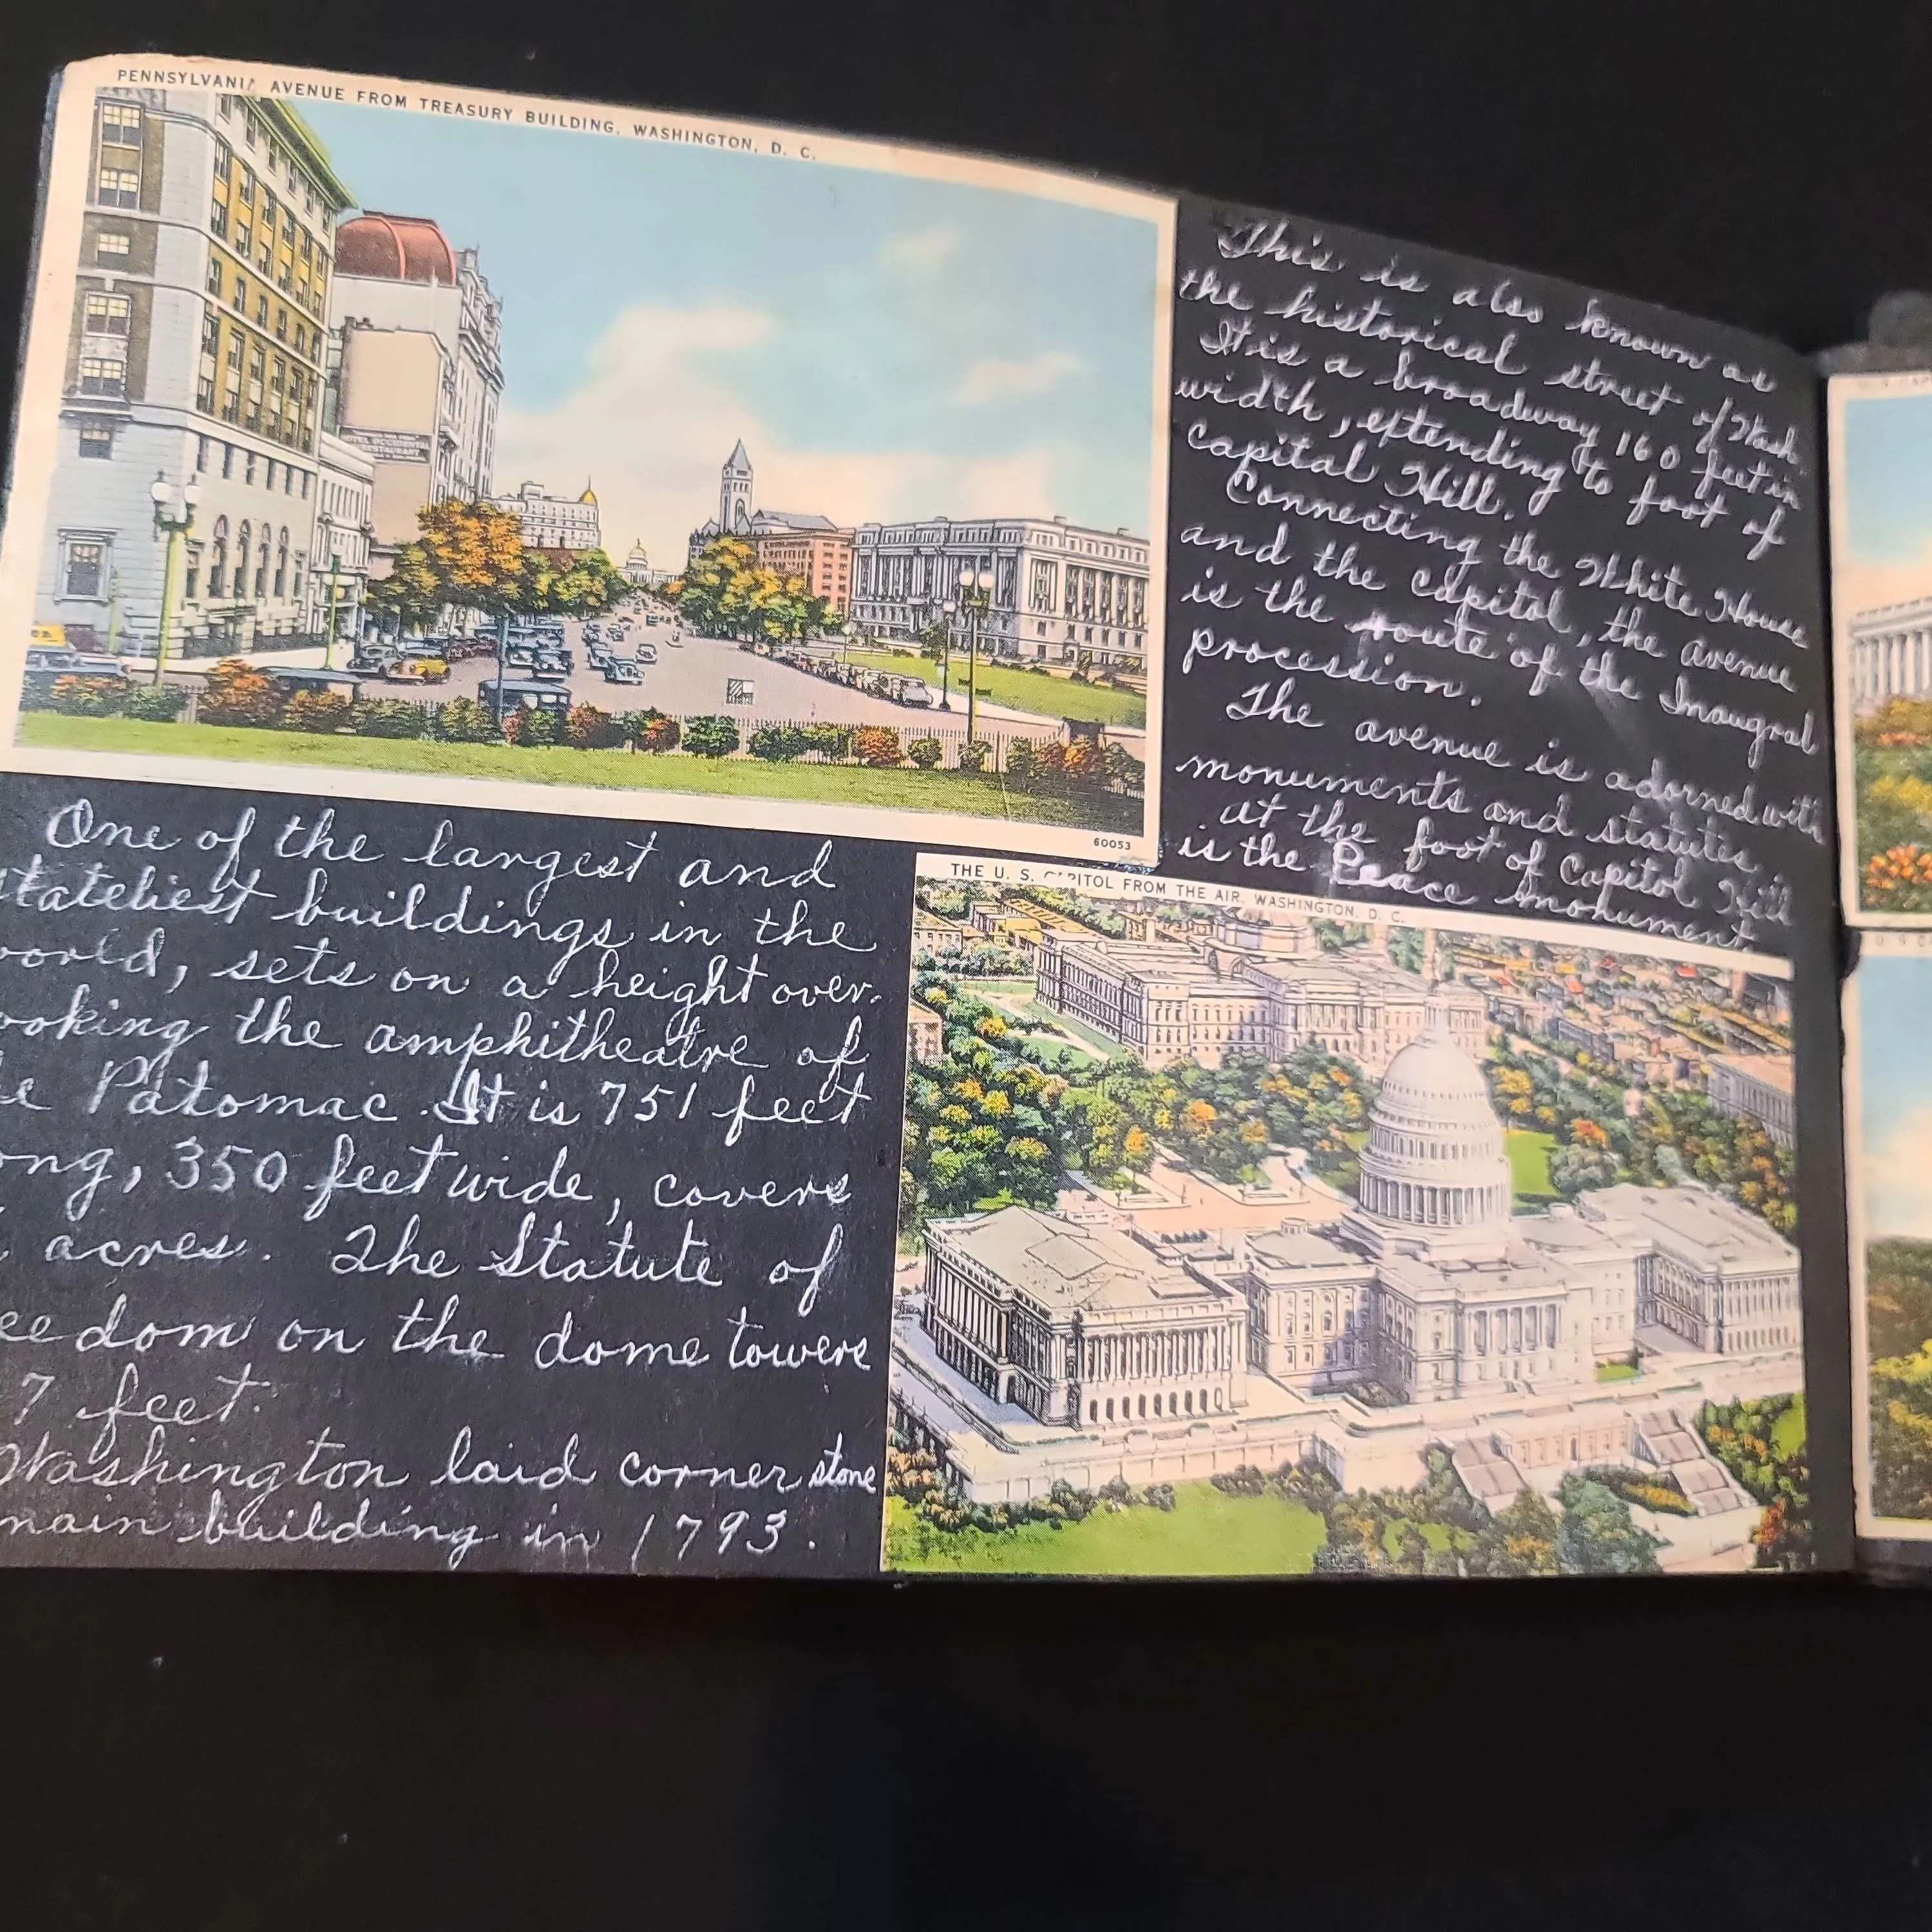 PENNSYLVANIA AVENUE FROM TREASURY BUILDING, WASHINGTON, D. C.
HOTEL OCCIDENTAL
RESTAURANT
60053
This is also known as
the historical street of Wash.
It is a broadway 160 feet in
width, extending to foot of
capital Hill.
Connecting the White House
and the capitol, the avenue
is the route of the Inaugral
procession.
The avenue is adorned with
monuments and statutes.
at the foot of Capitol Hill
is the Peace Monument
One of the largest and
stateliest buildings in the
world, sets on a height over-
ooking the amphitheatre of
he Patomac. It is 751 feet
ong, 350 feet wide, covers
acres. The Statute of
eedom on the dome towers
7 feet.
Washington laid corner stone
main building in 1793.
THE U. S. CAPITOL FROM THE AIR, WASHINGTON, D. C.